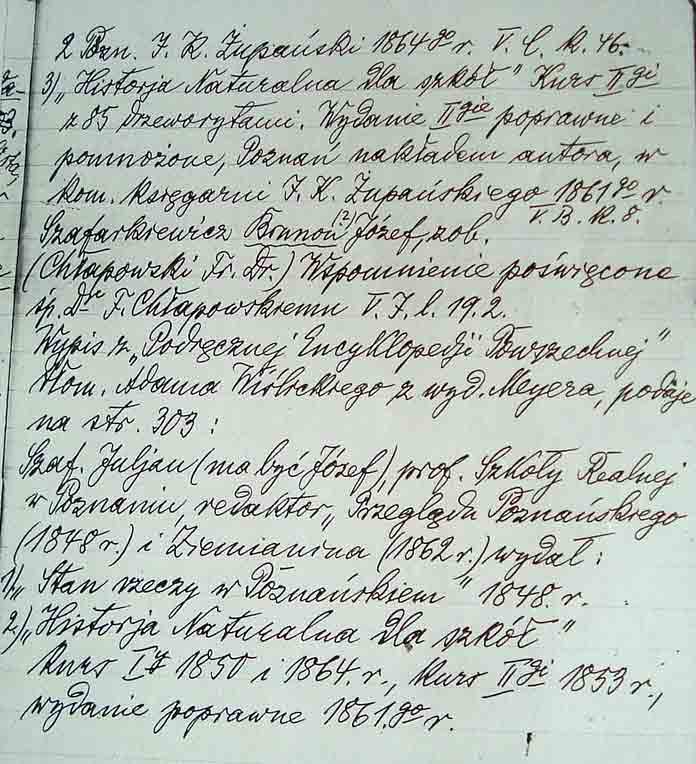 2 Pozn. J. K. Żupański 1864go r. V. C. k. 46.
3) „Historja Naturalna dla szkół" Kurs IIgi
z 85 drzeworytami. Wydanie IIgie poprawne i
pomnożone, Poznań nakładem autora, w
kom. księgarni J. K. Żupańskiego 1861go r.
V. B. k. 8.
Szafarkiewicz (2) Józef, zob.
(Chłapowski Fr. Dr.) Wspomnienie poświęcone
śp. Dr F. Chłapowskiemu V. J. l. 19.2.
Wypis z „Podręcznej Encyklopedji Powszechnej"
tłom. Adama Wiślickiego z wyd. Meyera, podaje
na str. 303:
Szaf. Juljan (ma być Józef), prof. Szkoły Realnej
w Poznaniu, redaktor „Przeglądu Poznańskiego
(1848 r.) i Ziemianina (1862 r.) wydał:
1) „Stan rzeczy w Poznańskiem" 1848. r.
2.) „Historja Naturalna dla szkół"
kurs I 1850 i 1864. r., kurs IIgi 1853 r.,
wydanie poprawne 1861.go r.